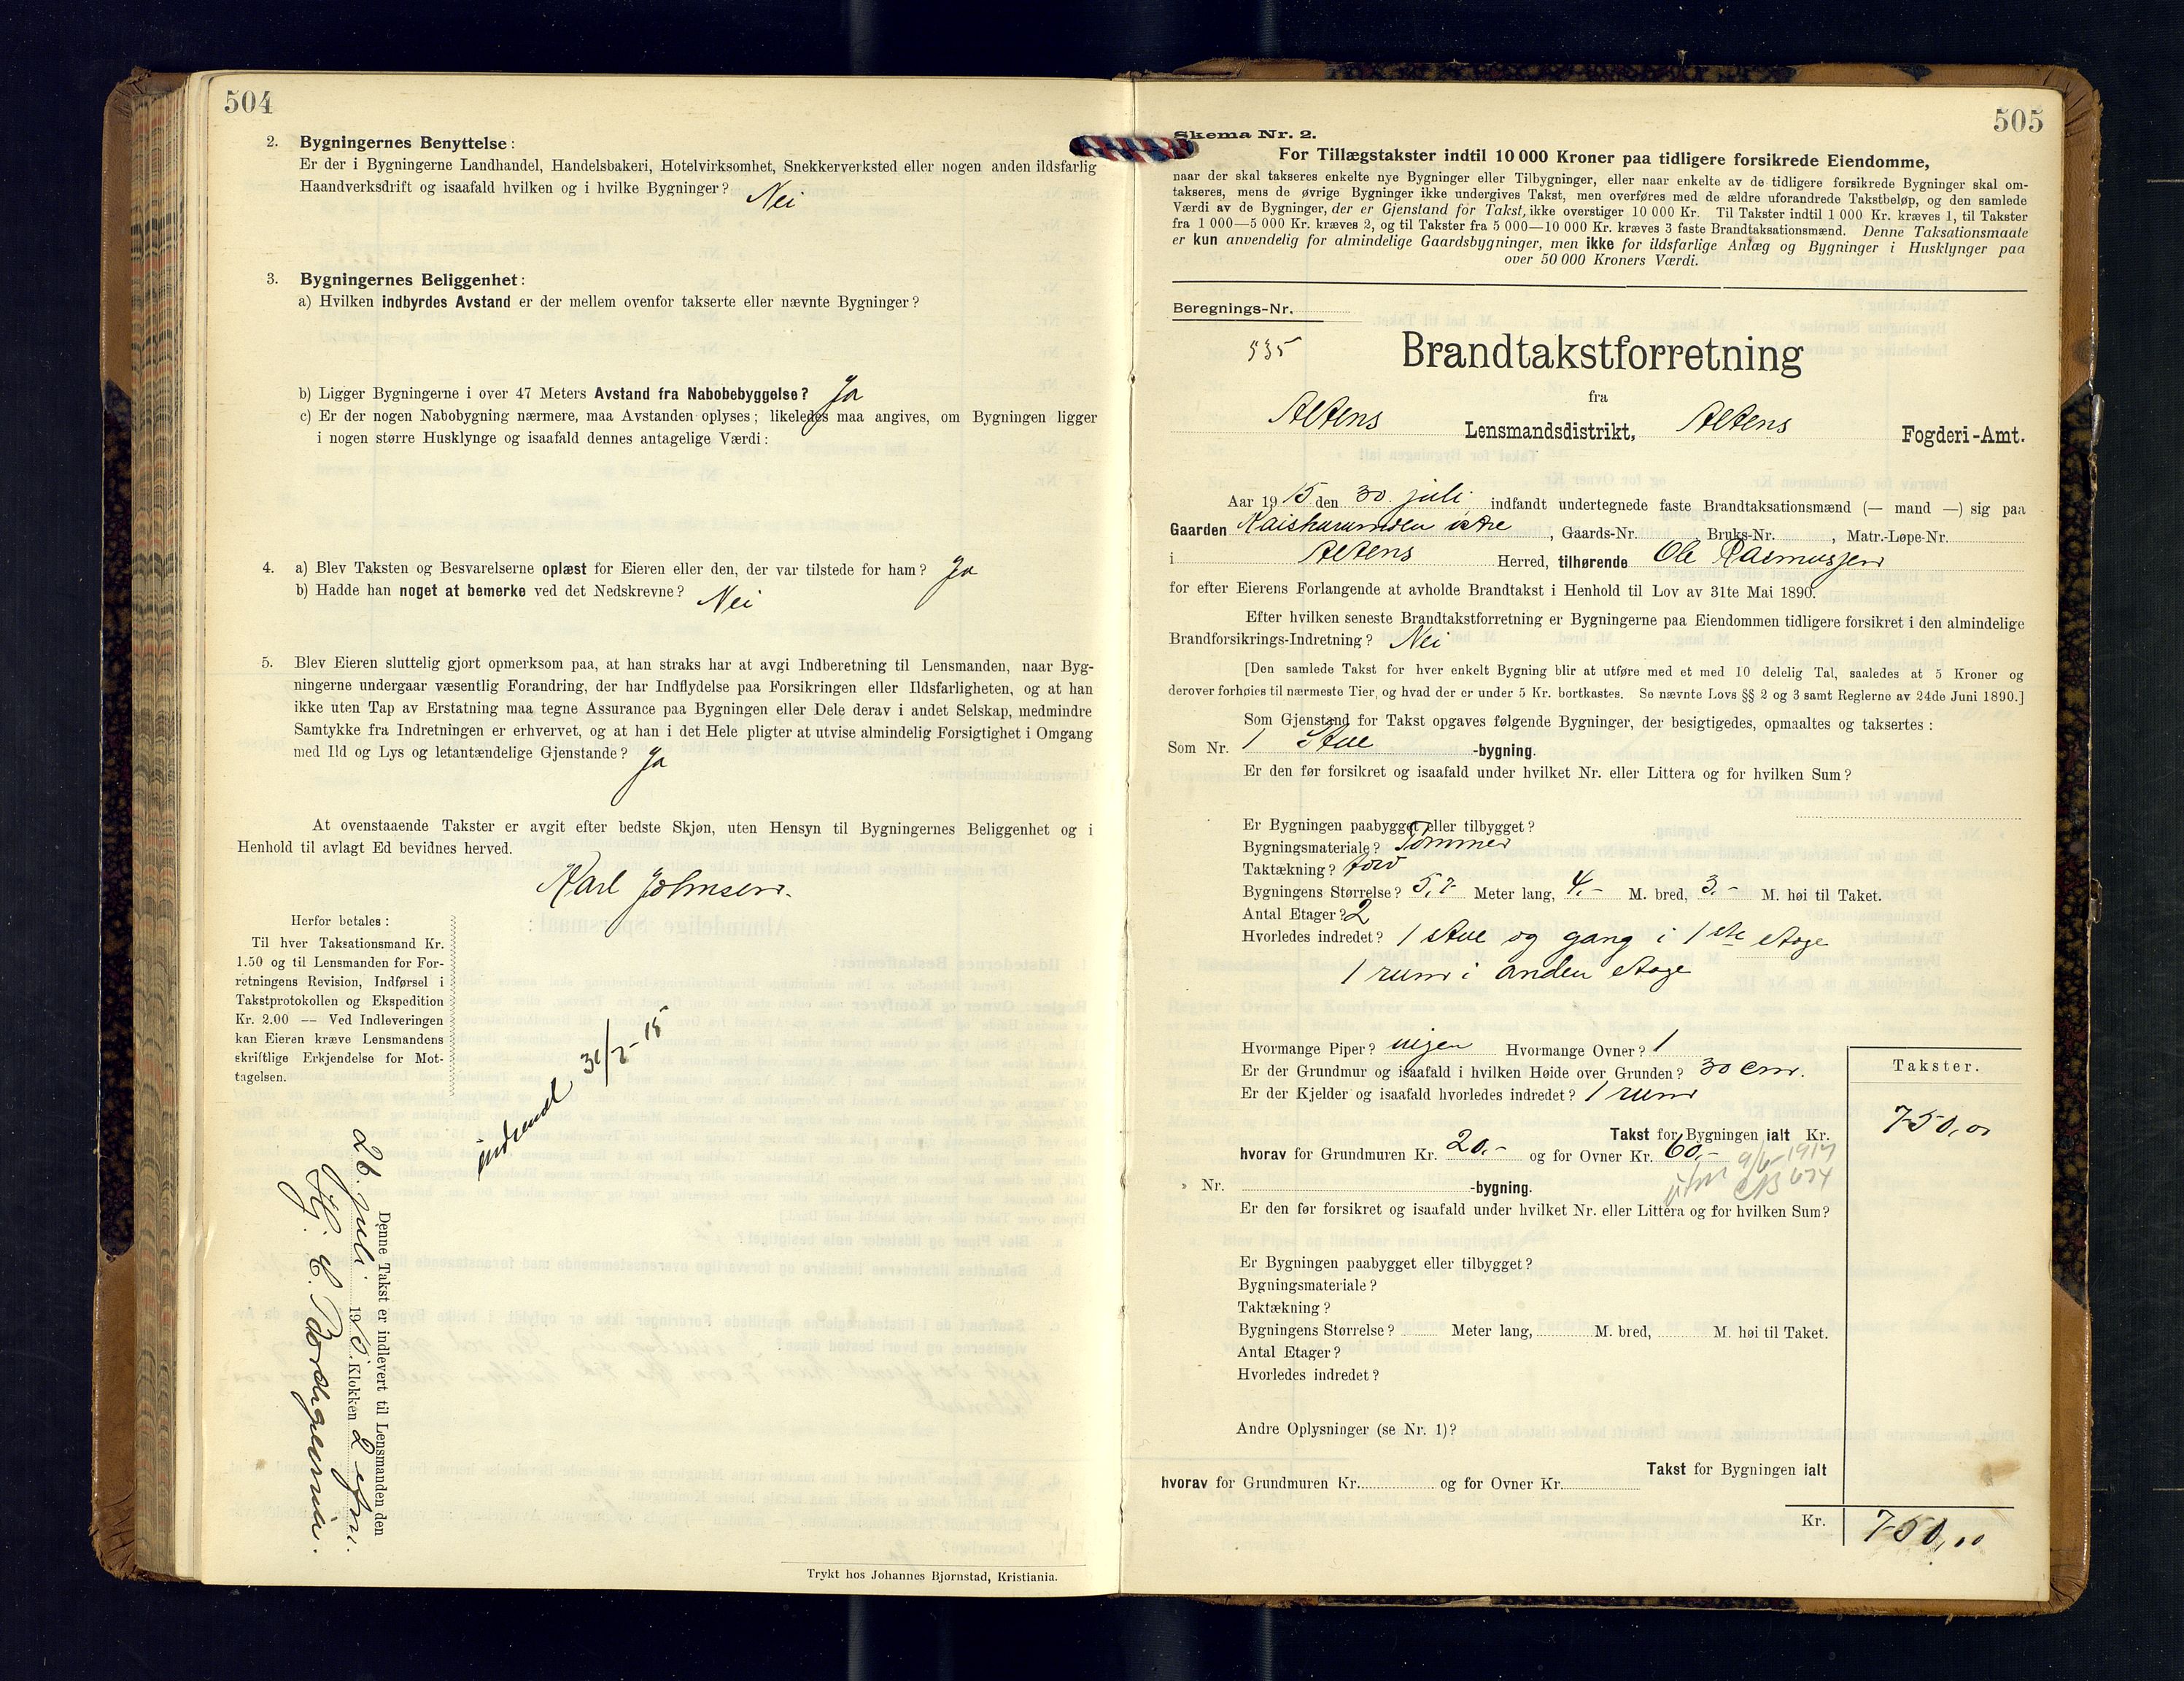 504
2. Bygningernes Benyttelse:
Er der i Bygningerne Landhandel, Handelsbakeri, Hotelvirksomhet, Snekkerverksted eller nogen anden ildsfarlig
Haandverksdrift og isaafald hvilken og i hvilke Bygninger? Nei
3. Bygningernes Beliggenhet:
a) Hvilken indbyrdes Avstand er der mellem ovenfor takserte eller nævnte Bygninger?
b) Ligger Bygningerne i over 47 Meters Avstand fra Nabobebyggelse? Ja
c) Er der nogen Nabobygning nærmere, maa Avstanden oplyses; likeledes maa angives, om Bygningen ligger
i nogen større Husklynge og isaafald dennes antagelige Værdi:
4. a) Blev Taksten og Besvarelserne oplæst for Eieren eller den, der var tilstede for ham? Ja
b) Hadde han noget at bemerke ved det Nedskrevne? Nei
5. Blev Eieren sluttelig gjort opmerksom paa, at han straks har at avgi Indberetning til Lensmanden, naar Byg-
ningerne undergaar væsentlig Forandring, der har Indflydelse paa Forsikringen eller Ildsfarligheten, og at han
ikke uten Tap av Erstatning maa tegne Assurance paa Bygningen eller Dele derav i andet Selskap, medmindre
Samtykke fra Indretningen er erhvervet, og at han i det Hele pligter at utvise almindelig Forsigtighet i Omgang
med Ild og Lys og letantændelige Gjenstande? Ja
At ovenstaaende Takster er avgit efter bedste Skjøn, uten Hensyn til Bygningernes Beliggenhet og i
Henhold til avlagt Ed bevidnes herved.
Karl Johnsen.
Herfor betales:
Til hver Taksationsmand Kr.
1.50 og til Lensmanden for For-
retningens Revision, Indførsel i
Takstprotokollen og Ekspedition
Kr. 2.00 — Ved Indleveringen
kan Eieren kræve Lensmandens
skriftlige Erkjendelse for Mot-
tagelsen.
indsendt 31/7-15
Denne Takst er indlevert til Lensmanden den
26. juli. 1915. Klokken 2 efm.
Trykt hos Johannes Bjornstad, Kristiania.
505
Skema Nr. 2.
For Tillægstakster indtil 10 000 Kroner paa tidligere forsikrede Eiendomme,
naar der skal takseres enkelte nye Bygninger eller Tilbygninger, eller naar enkelte av de tidligere forsikrede Bygninger skal om-
takseres, mens de øvrige Bygninger ikke undergives Takst, men overføres med de ældre uforandrede Takstbeløp, og den samlede
Værdi av de Bygninger, der er Gjenstand for Takst, ikke overstiger 10 000 Kr. Til Takster indtil 1 000 Kr. kræves 1, til Takster
fra 1 000—5 000 Kr. kræves 2, og til Takster fra 5 000—10 000 Kr. kræves 3 faste Brandtaksationsmænd. Denne Taksationsmaate
er kun anvendelig for almindelige Gaardsbygninger, men ikke for ildsfarlige Anlæg og Bygninger i Husklynger paa
over 50 000 Kroners Værdi.
Beregnings-Nr.
535
Brandtakstforretning
fra
Altens Lensmandsdistrikt, Altens Fogderi-Amt.
Aar 1915 den 30. juli indfandt undertegnede faste Brandtaksationsmænd (— mand —) sig paa
Gaarden , Gaards-Nr. , Bruks-Nr. , Matr.-Løpe-Nr.
i Altens Herred, tilhørende Ole Rasmussen
for efter Eierens Forlangende at avholde Brandtakst i Henhold til Lov av 31te Mai 1890.
Efter hvilken seneste Brandtakstforretning er Bygningerne paa Eiendommen tidligere forsikret i den almindelige
Brandforsikrings-Indretning? Nei
[Den samlede Takst for hver enkelt Bygning blir at utføre med et med 10 delelig Tal, saaledes at 5 Kroner og
derover forhøies til nærmeste Tier, og hvad der er under 5 Kr. bortkastes. Se nævnte Lovs §§ 2 og 3 samt Reglerne av 24de Juni 1890.]
Som Gjenstand for Takst opgaves følgende Bygninger, der besigtigedes, opmaaltes og taksertes:
Som Nr. 1 Stue -bygning.
Er den før forsikret og isaafald under hvilket Nr. eller Littera og for hvilken Sum?
Er Bygningen paabygget eller tilbygget?
Bygningsmateriale? Tømmer
Taktækning? torv
Bygningens Størrelse? 5,7 Meter lang, 4.- M. bred, 3.- M. høi til Taket.
Antal Etager? 2
Hvorledes indredet? 1 stue og gang i 1ste etage
1 rum i anden etage
Hvormange Piper? ingen Hvormange Ovner? 1
Er der Grundmur og isaafald i hvilken Høide over Grunden? 30 cm.
Er der Kjelder og isaafald hvorledes indredet? 1 rum
Takster.
Takst for Bygningen ialt Kr. 750,00
hvorav for Grundmuren Kr. 20.- og for Ovner Kr. 60.-
9/6-1917
Nr. -bygning.
Er den før forsikret og isaafald under hvilket Nr. eller Littera og for hvilken Sum?
Er Bygningen paabygget eller tilbygget?
Bygningsmateriale?
Taktækning?
Bygningens Størrelse? Meter lang, M. bred, M. høi til Taket.
Antal Etager?
Hvorledes indredet?
Andre Oplysninger (se Nr. 1)?
Takst for Bygningen ialt
hvorav for Grundmuren Kr. og for Ovner Kr.
Kr. 750,00